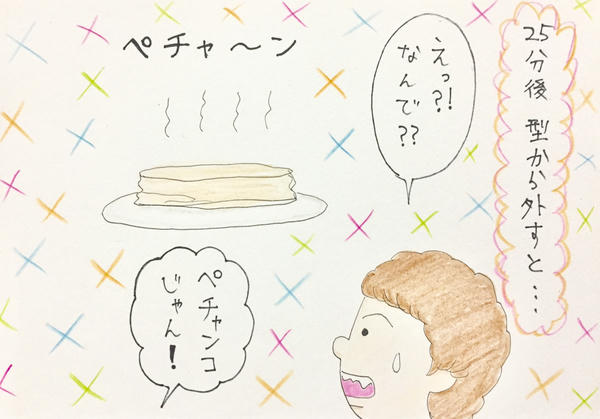 25分後 型から外すと…
えっ?!
なんで??
ペチャ〜ン
ペチャンコ
じゃん!